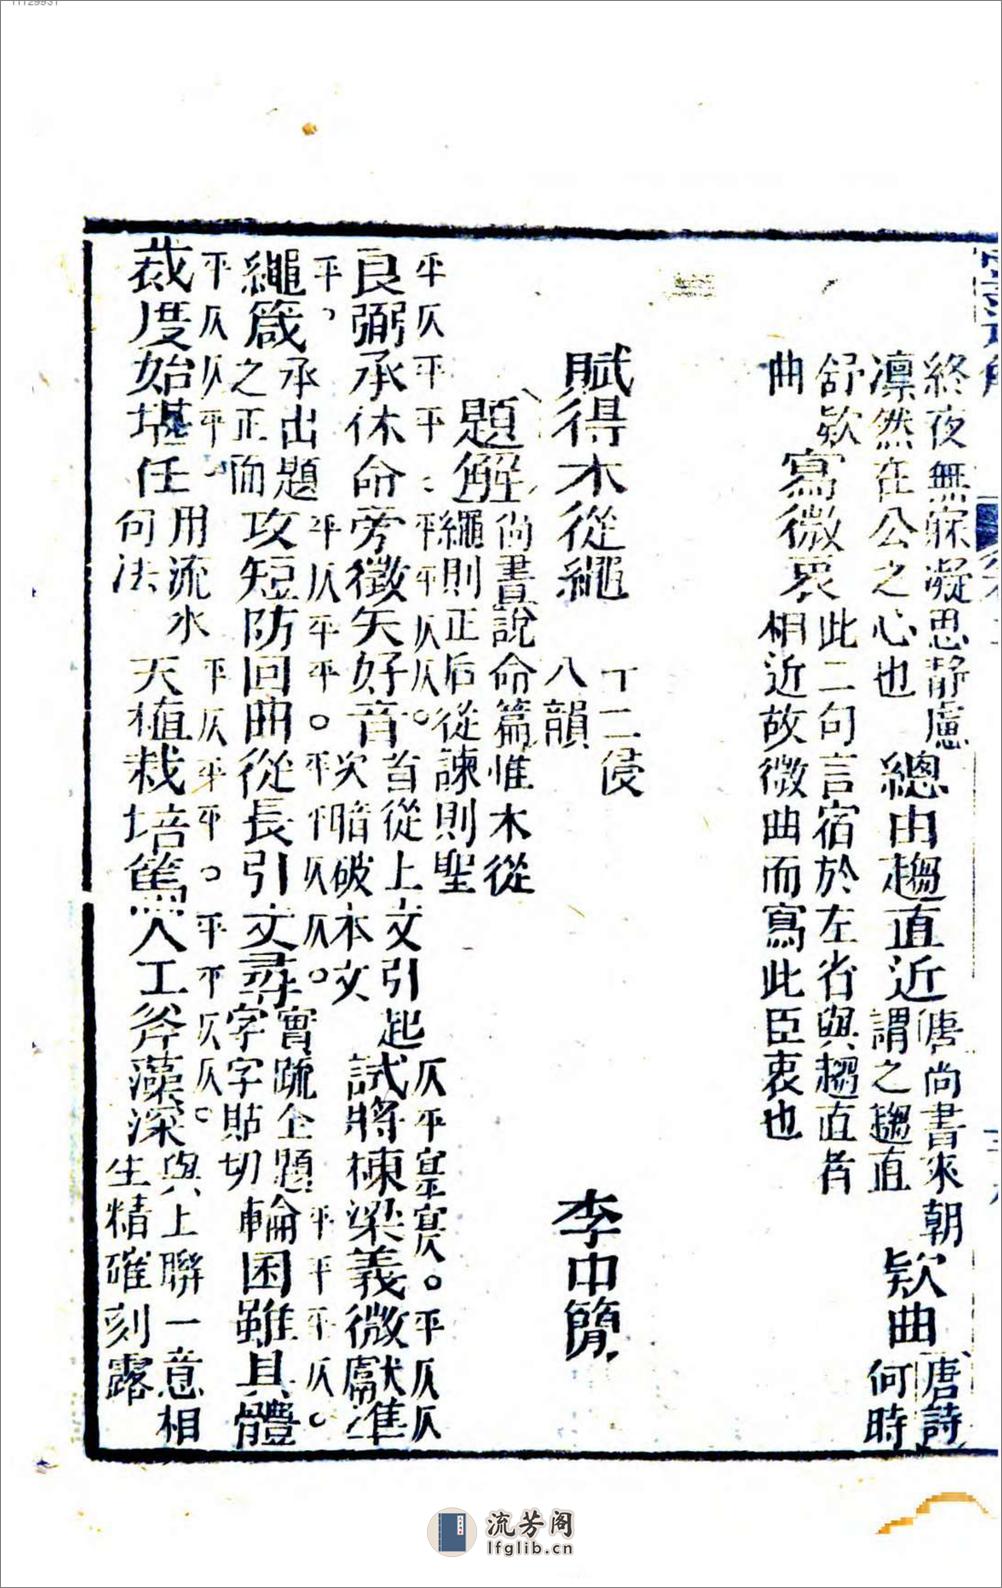 終夜無寐凝思靜慮
凜然在公之心也
總由趨直近
唐尚書來朝
謂之趨直
欵曲
唐詩
何時
舒欵
曲
寫微衷
此二句言宿於左省與趨直者
相近故微曲而寫此臣衷也
賦得木從繩
十二侵
八韻
李中簡
題解
尚書說命篇惟木從
繩則正后從諫則聖
平仄平平平平仄仄。仄平
平仄仄
良弼承休命旁徵矢好音
首從上文引起
次暗破本文
試將棟梁義微獻準
平。平仄平平。平平仄仄。平平平仄。
繩箴
承出題
之正面
攻短防回曲從長引文尋
實疏全題
字字貼切
輪囷雖具體
平仄仄仄平。平仄平平。平平仄仄。
裁度始堪任
用流水
何法
天植栽培篤人工斧藻深
與上聯一意相
生精確刻露
流芳阁
lfglib.cn